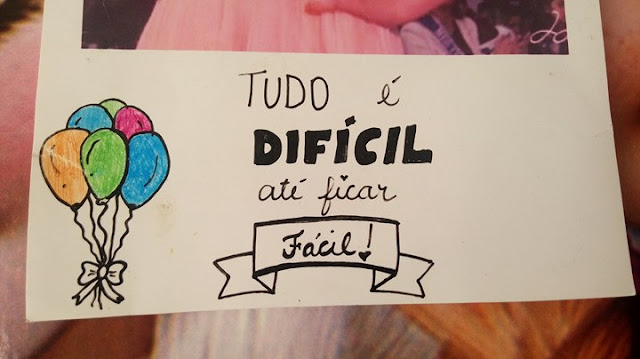 TUDO é
DIFÍCIL
até ficar
Fácil!